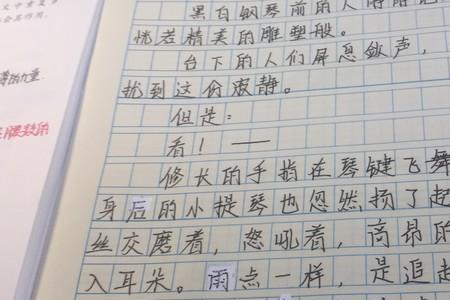 文中重复多
会其作用。
的力量。
黑白钢琴前的人
恍若精美的雕塑般。
台下的人们屏息敛声,
扰到这份寂静。
但是:
看!——
修长的手指在琴键飞舞
身后的小提琴也忽然损了起
丝交磨着,怒吼着,高昂的
入耳朵。雨点一样,是追